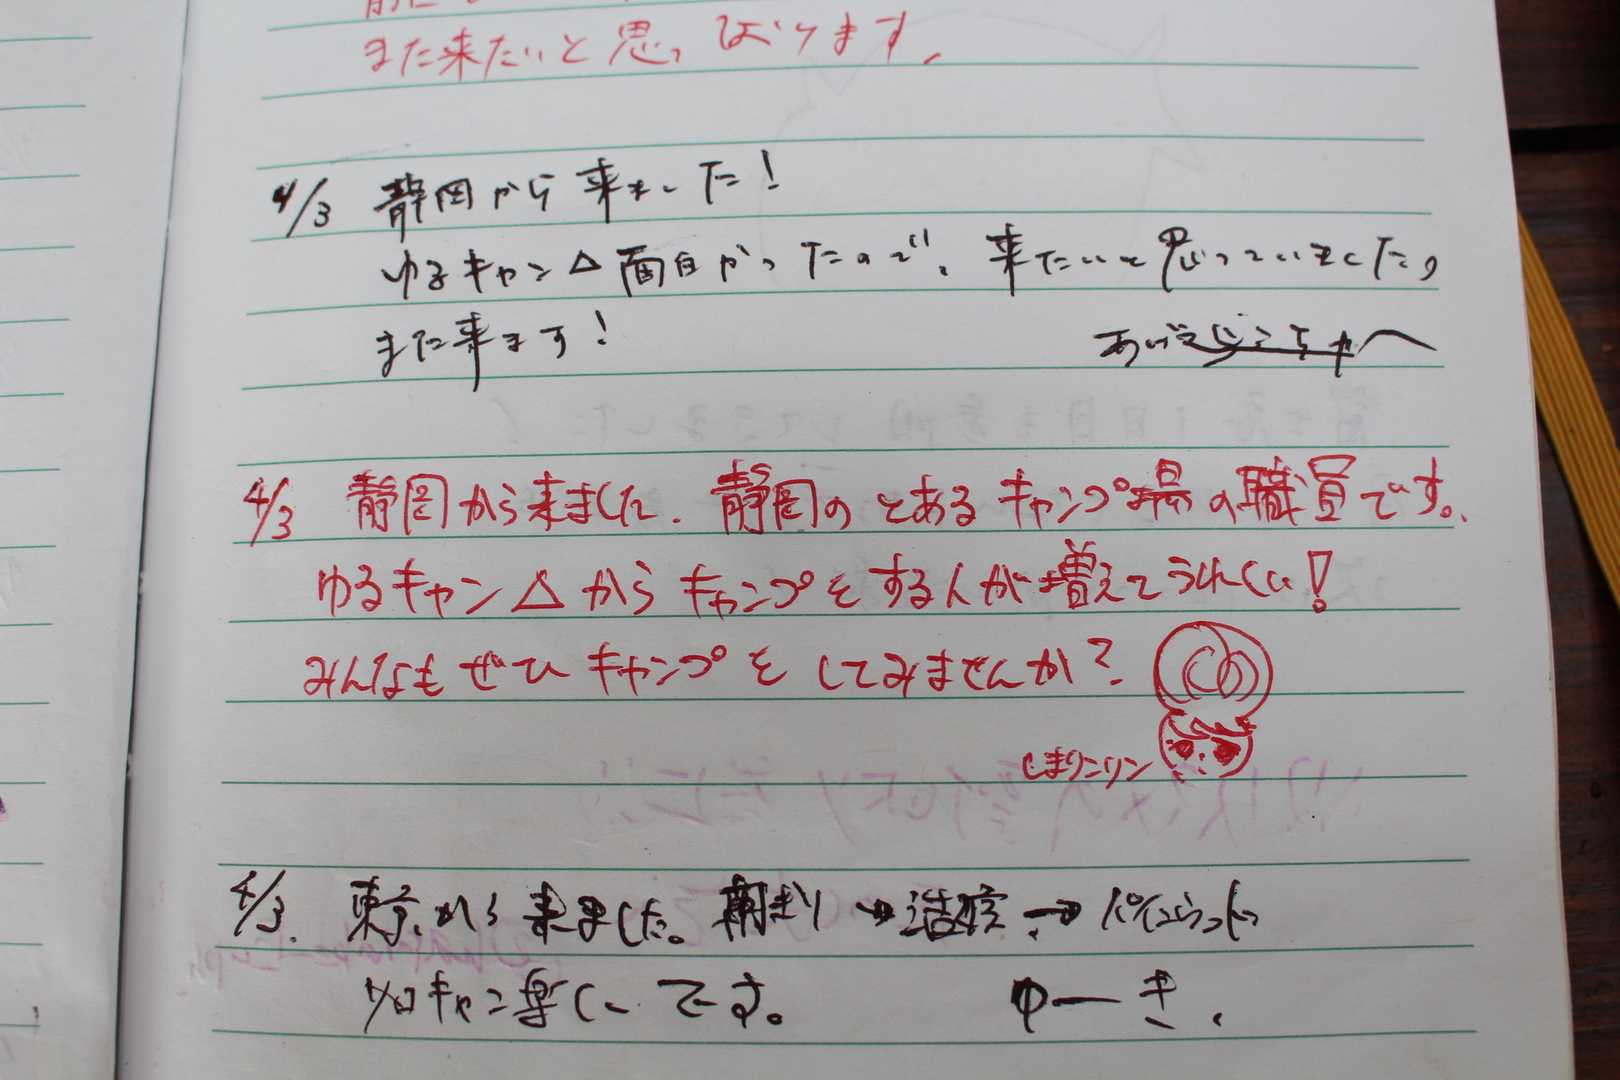 また来たいと思っております。
4/3 静岡から来ました！
ゆるキャン△面白かったので、来たいと思っていました。
また来ます！
4/3 静岡から来ました。静岡のとあるキャンプ場の職員です。
ゆるキャン△からキャンプをする人が増えてうれしい！
みんなもぜひキャンプをしてみませんか？
しまりんリン
4/3. 東京から来ました。 → → 
ソロキャン楽しいです。 ゆーき.